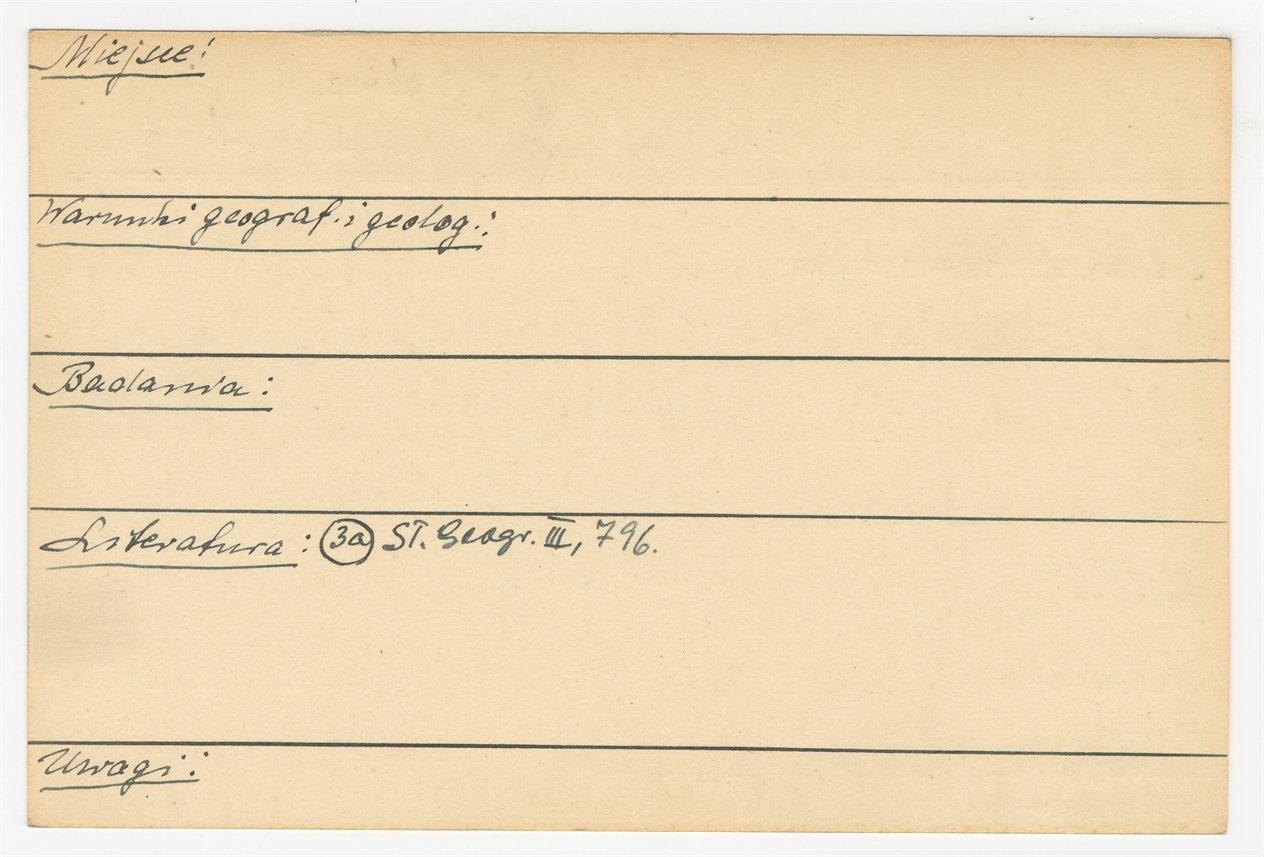 Miejsce:
Warunki geograf. i geolog.:
Badania:
Literatura: 3a St. Geogr. III, 796.
Uwagi: